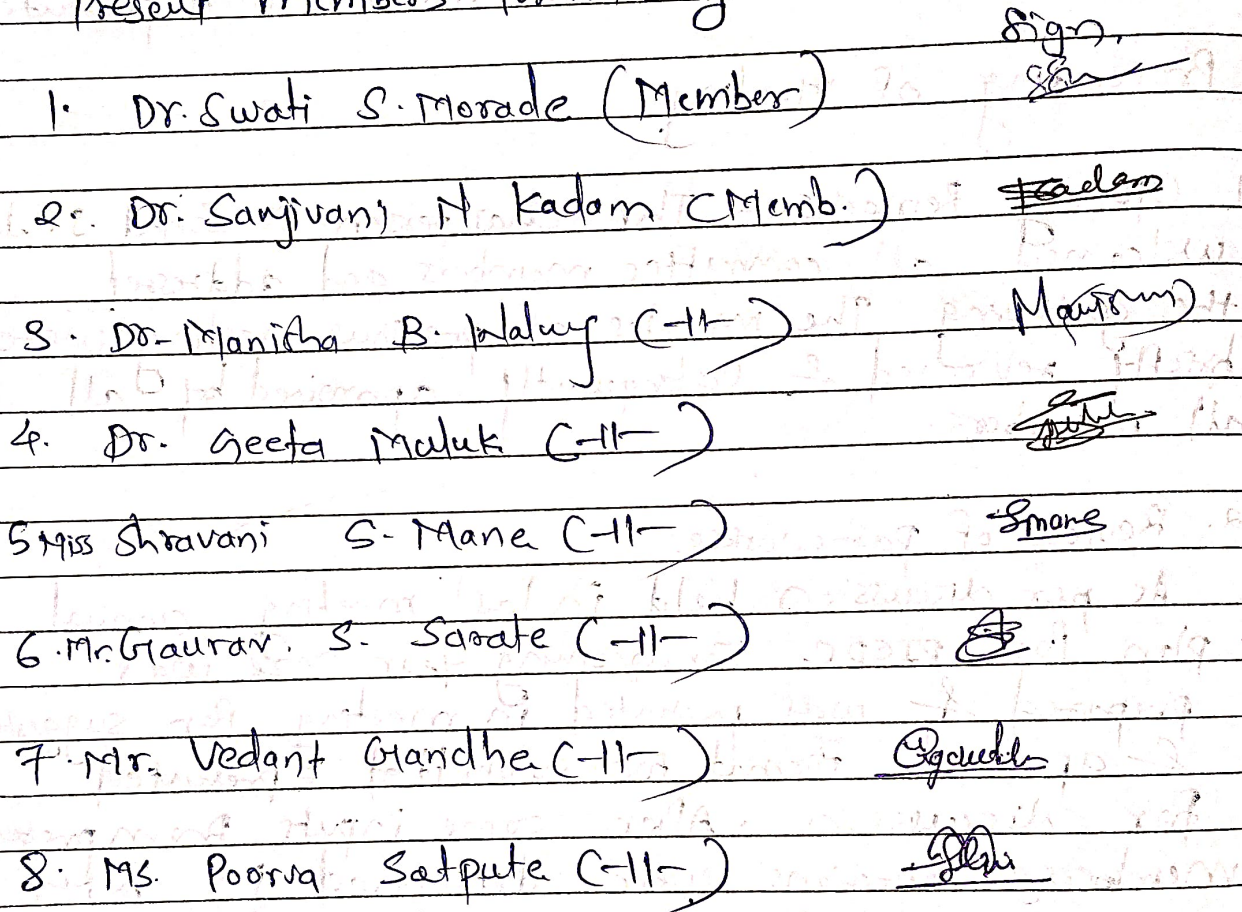 Present Members for
Sign.
1. Dr. Swati S. Morade (Member)
2. Dr. Sanjivani N Kadam (Memb.) Kadam
3. Dr. Manisha B. (-11-)
4. Dr. Geeta Maluk (-11-)
5 Miss Shravani S. Mane (-11-) Smane
6. Mr. Gaurav. S. Sarate (-11-)
7. Mr. Vedant Gandhe (-11-)
8. Ms. Poorva Satpute (-11-)